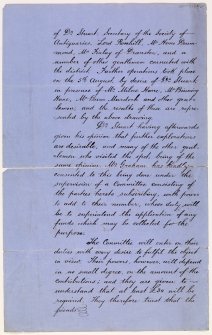 of Dr. Stuart, Secretary of the Society of
Antiquaries, Lord Rosehill, Mr. Home Drum-
mond, Mr. Finlay of Deanston, and a
number of other gentlemen connected with
the district. Further operations took place
on the 5th August, by desire of Dr. Stuart
in presence of Mr. Milne Home, Mr.
Home, Mr. Burn Murdoch and other gent-
lemen, and the results of these are repre-
sented by the above drawing.
Dr. Stuart having afterwards
given his opinion that further explorations
are desirable, and many of the other gent-
lemen who visited the spot being of the
same opinion, Mr. Graham has kindly
consented to this being done under the
supervision of a Committee consisting of
the parties hereto subscribing, with power
to add to their number, whose duty will
be to superintend the application of any
funds which may be collected for the
purpose.
The Committee will enter on their
duties with every desire to fulfil the object
in view. Their powers, however, will depend
in no small degree, on the amount of the
contributions; and they are given to
understand that at least £50 will be
required. They therefore trust that the
friends